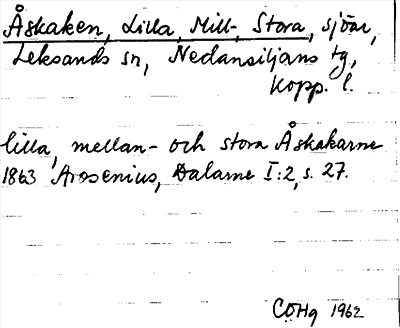 Åskaken, Lilla, Mill-, Stora, sjöar,
Leksands sn, Nedansiljans tg,
Kopp. l.
lilla, mellan- och stora Åskakarne
1863 Arosenius, Dalarne I:2, s. 27.
COHg 1962